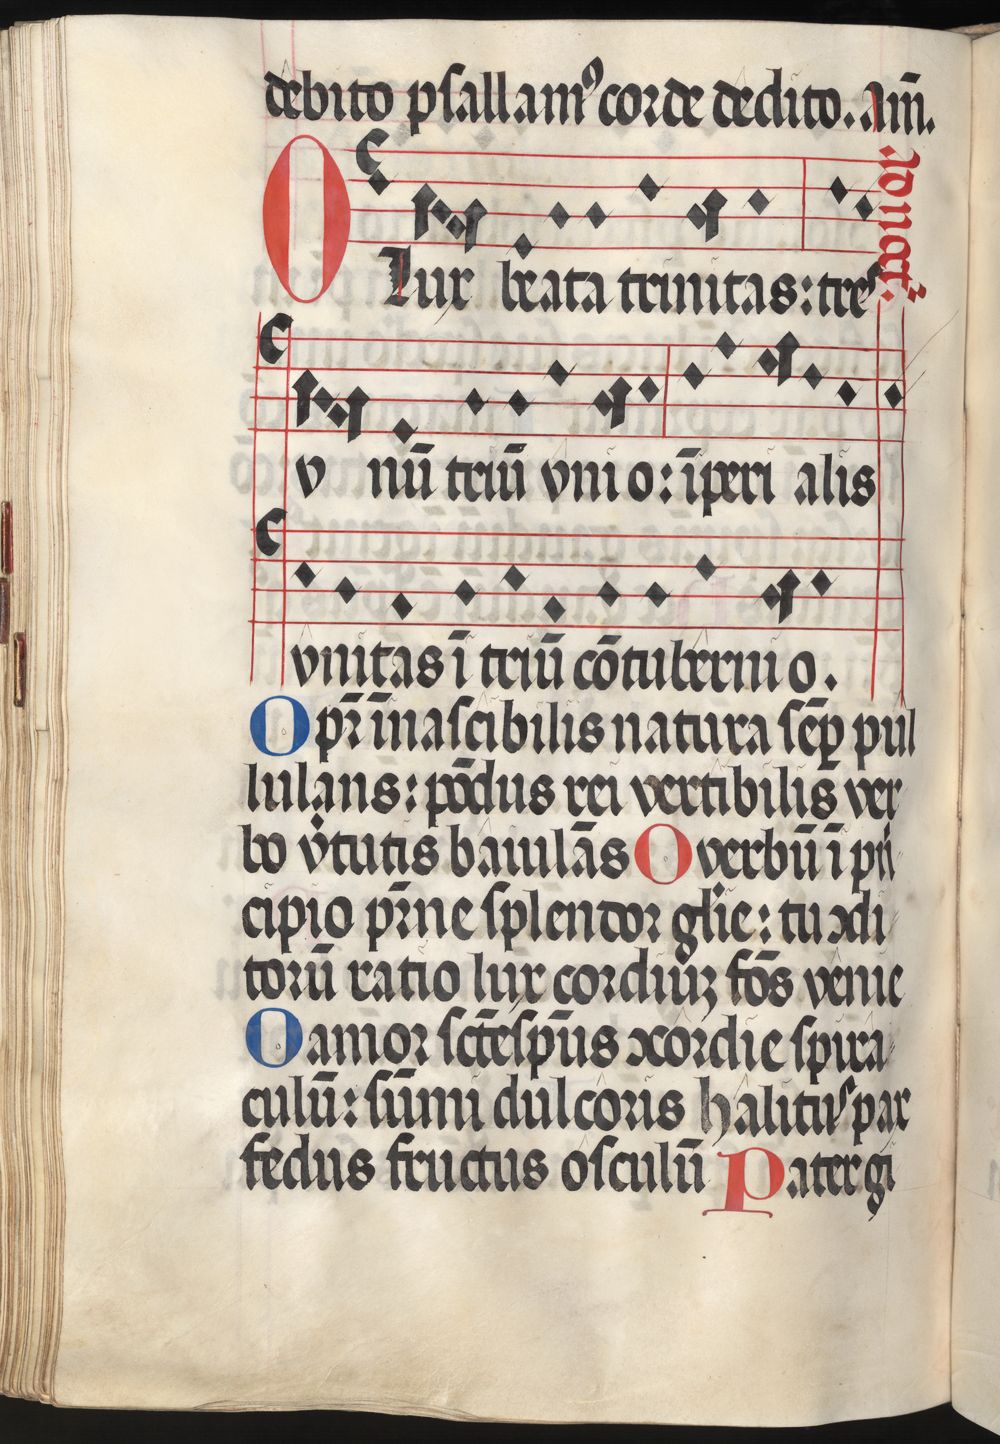 debito psallamꝰ corde dedito. Am̄.
O lux beata trinitas: tres
v nū triū vni o: īperi alis
vnitas ī triū cōtuberni o.
O pr̄ īnascibilis natura sēꝑ pul
lulans: pōdus rei vertibilis ver
bo v̓tutis baiulās O verbū ī pͥn
cipio pr̄ne splendor gl̄ie: tu ↄdi
torū ratio lux cordiuꝫ fōs venie
O amor sc̄te sp̄us ↄcordie spira
culū: sūmi dulcoris halitus pax
fedus fructus osculū Pater gi